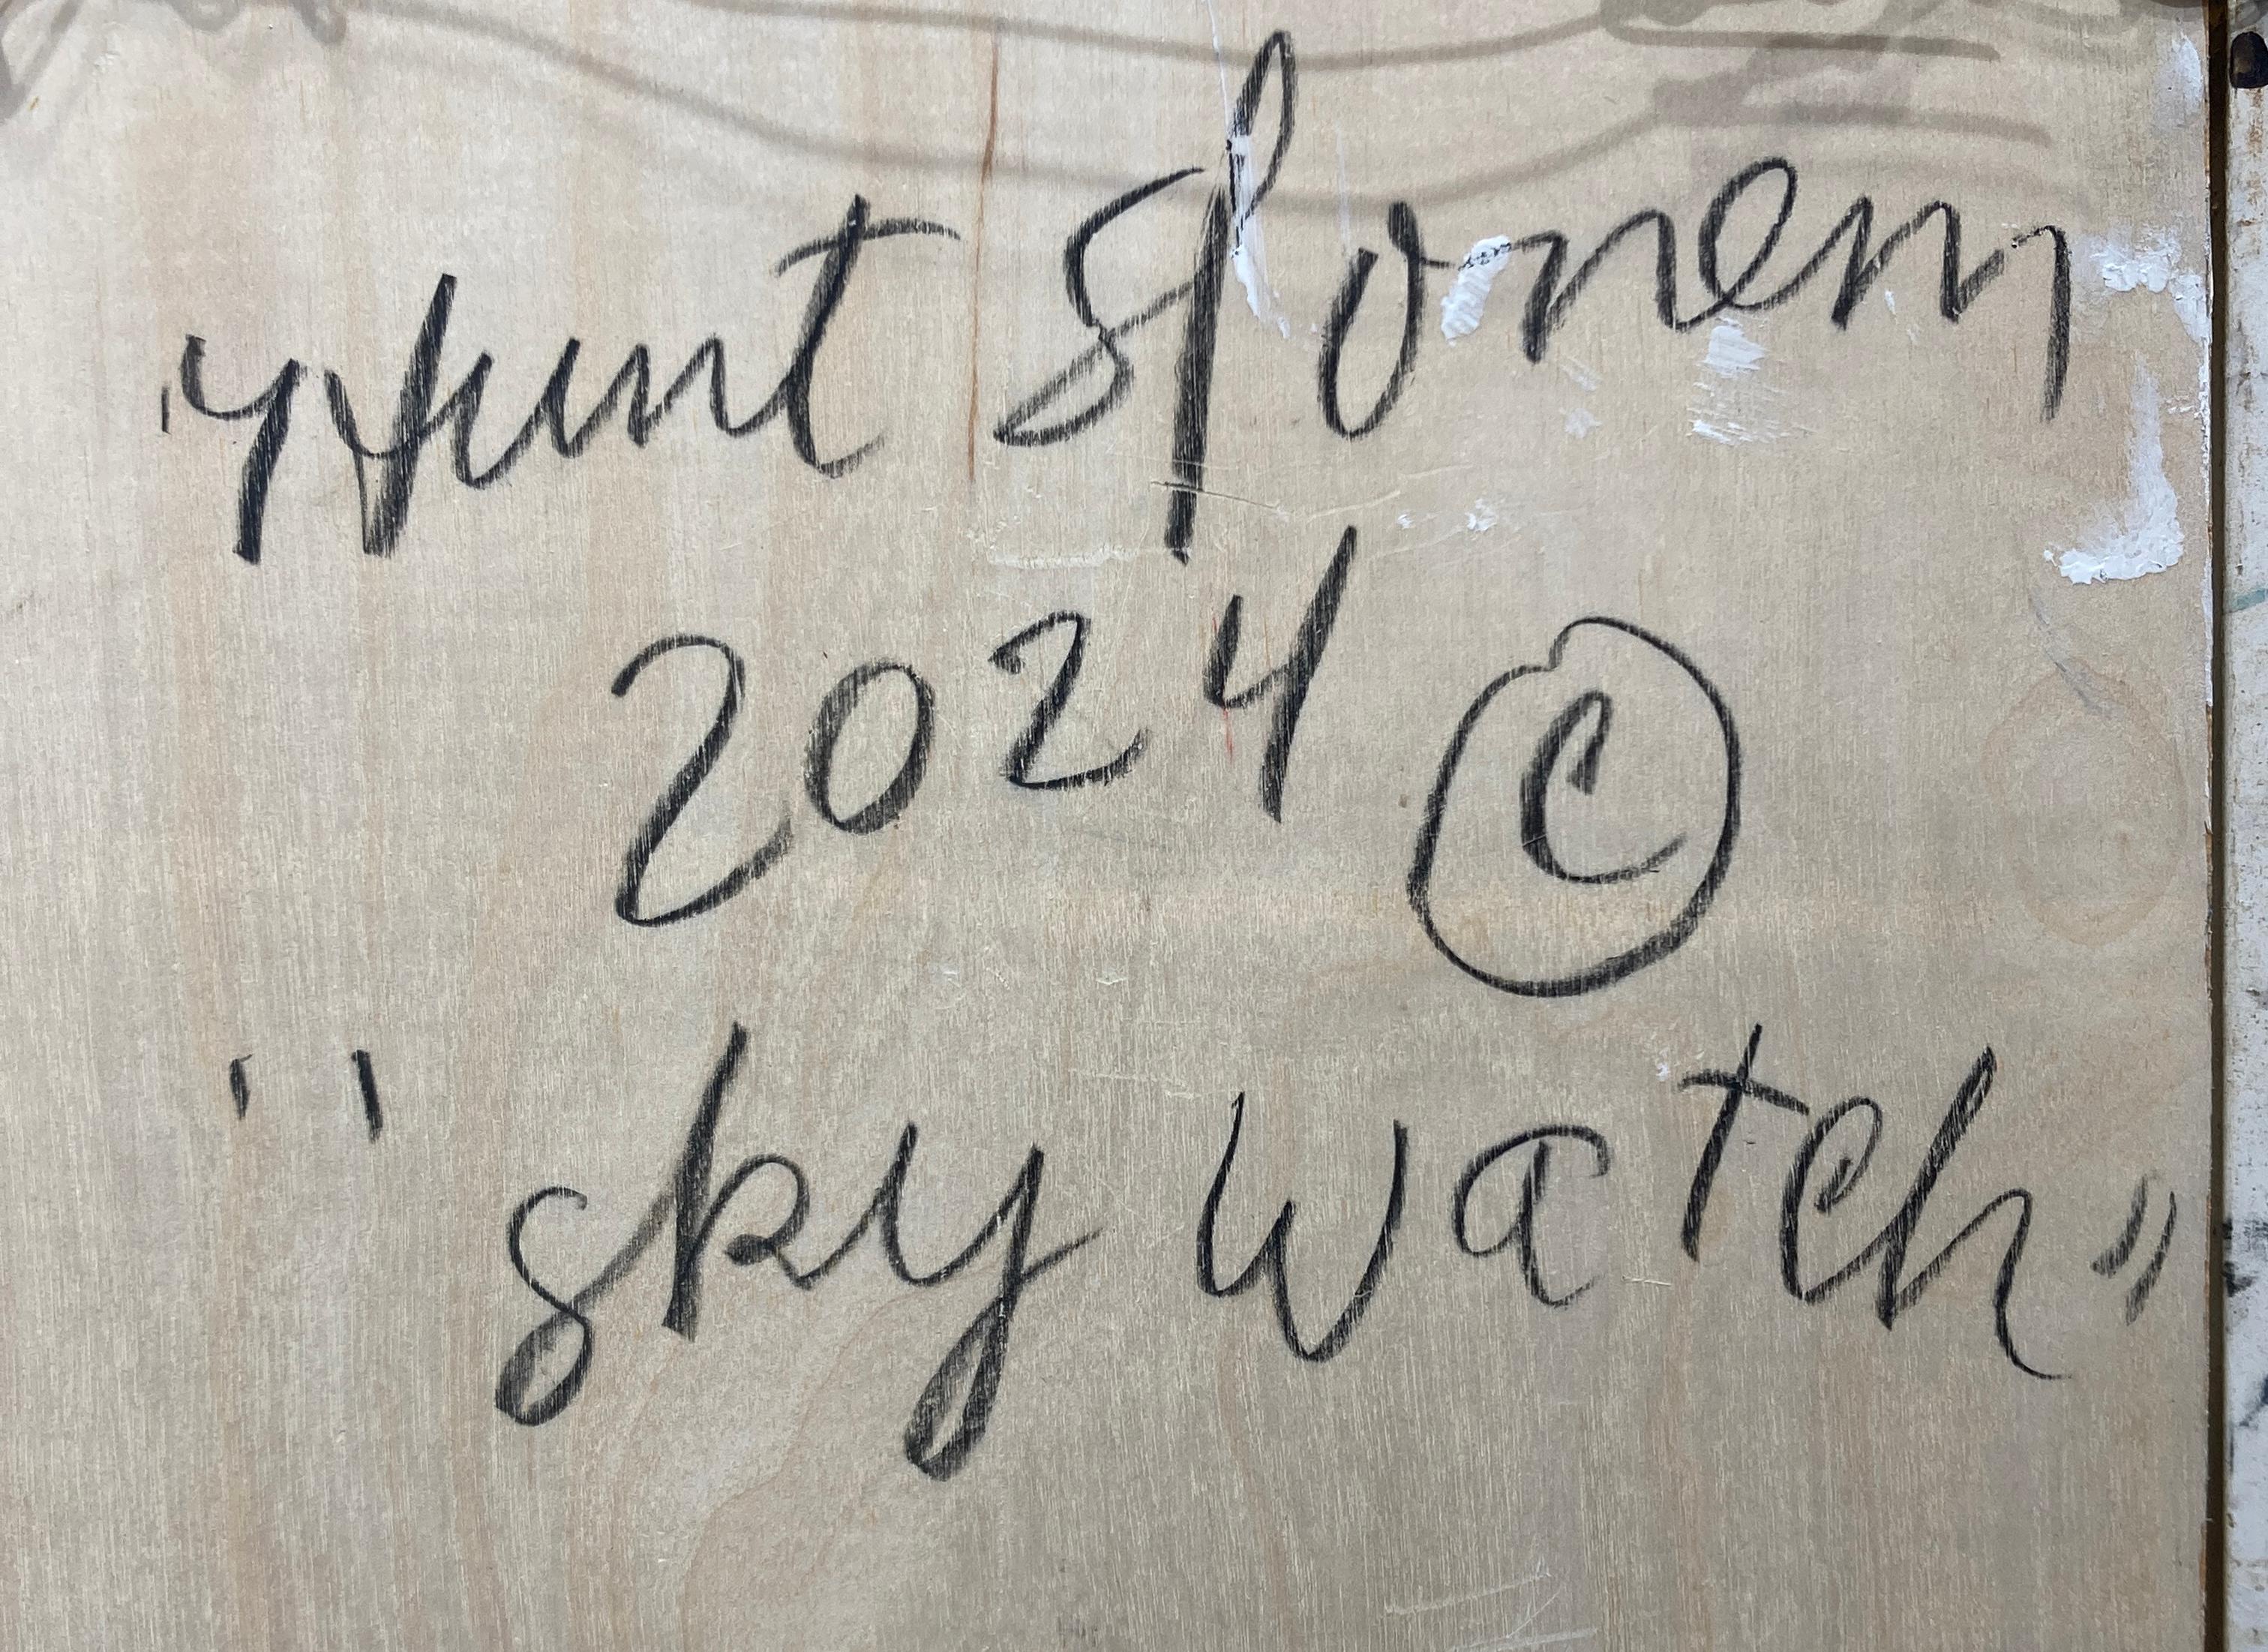 Hunt Slonem
2024 ©
"Sky Watch"